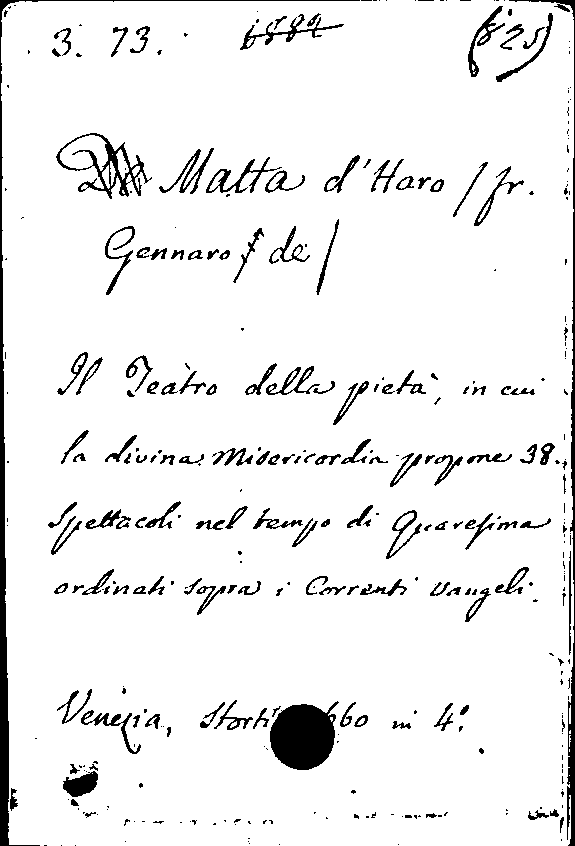 3. 73. 6882 (825)
Matta d'Haro / fr.
Gennaro de /
Il Teatro della pietà, in cui
la divina Misericordia propone 38.
Spettacoli nel tempo di Quaresima
ordinati sopra i Correnti Vangeli.
Venezia, Storti 660 in 4°.